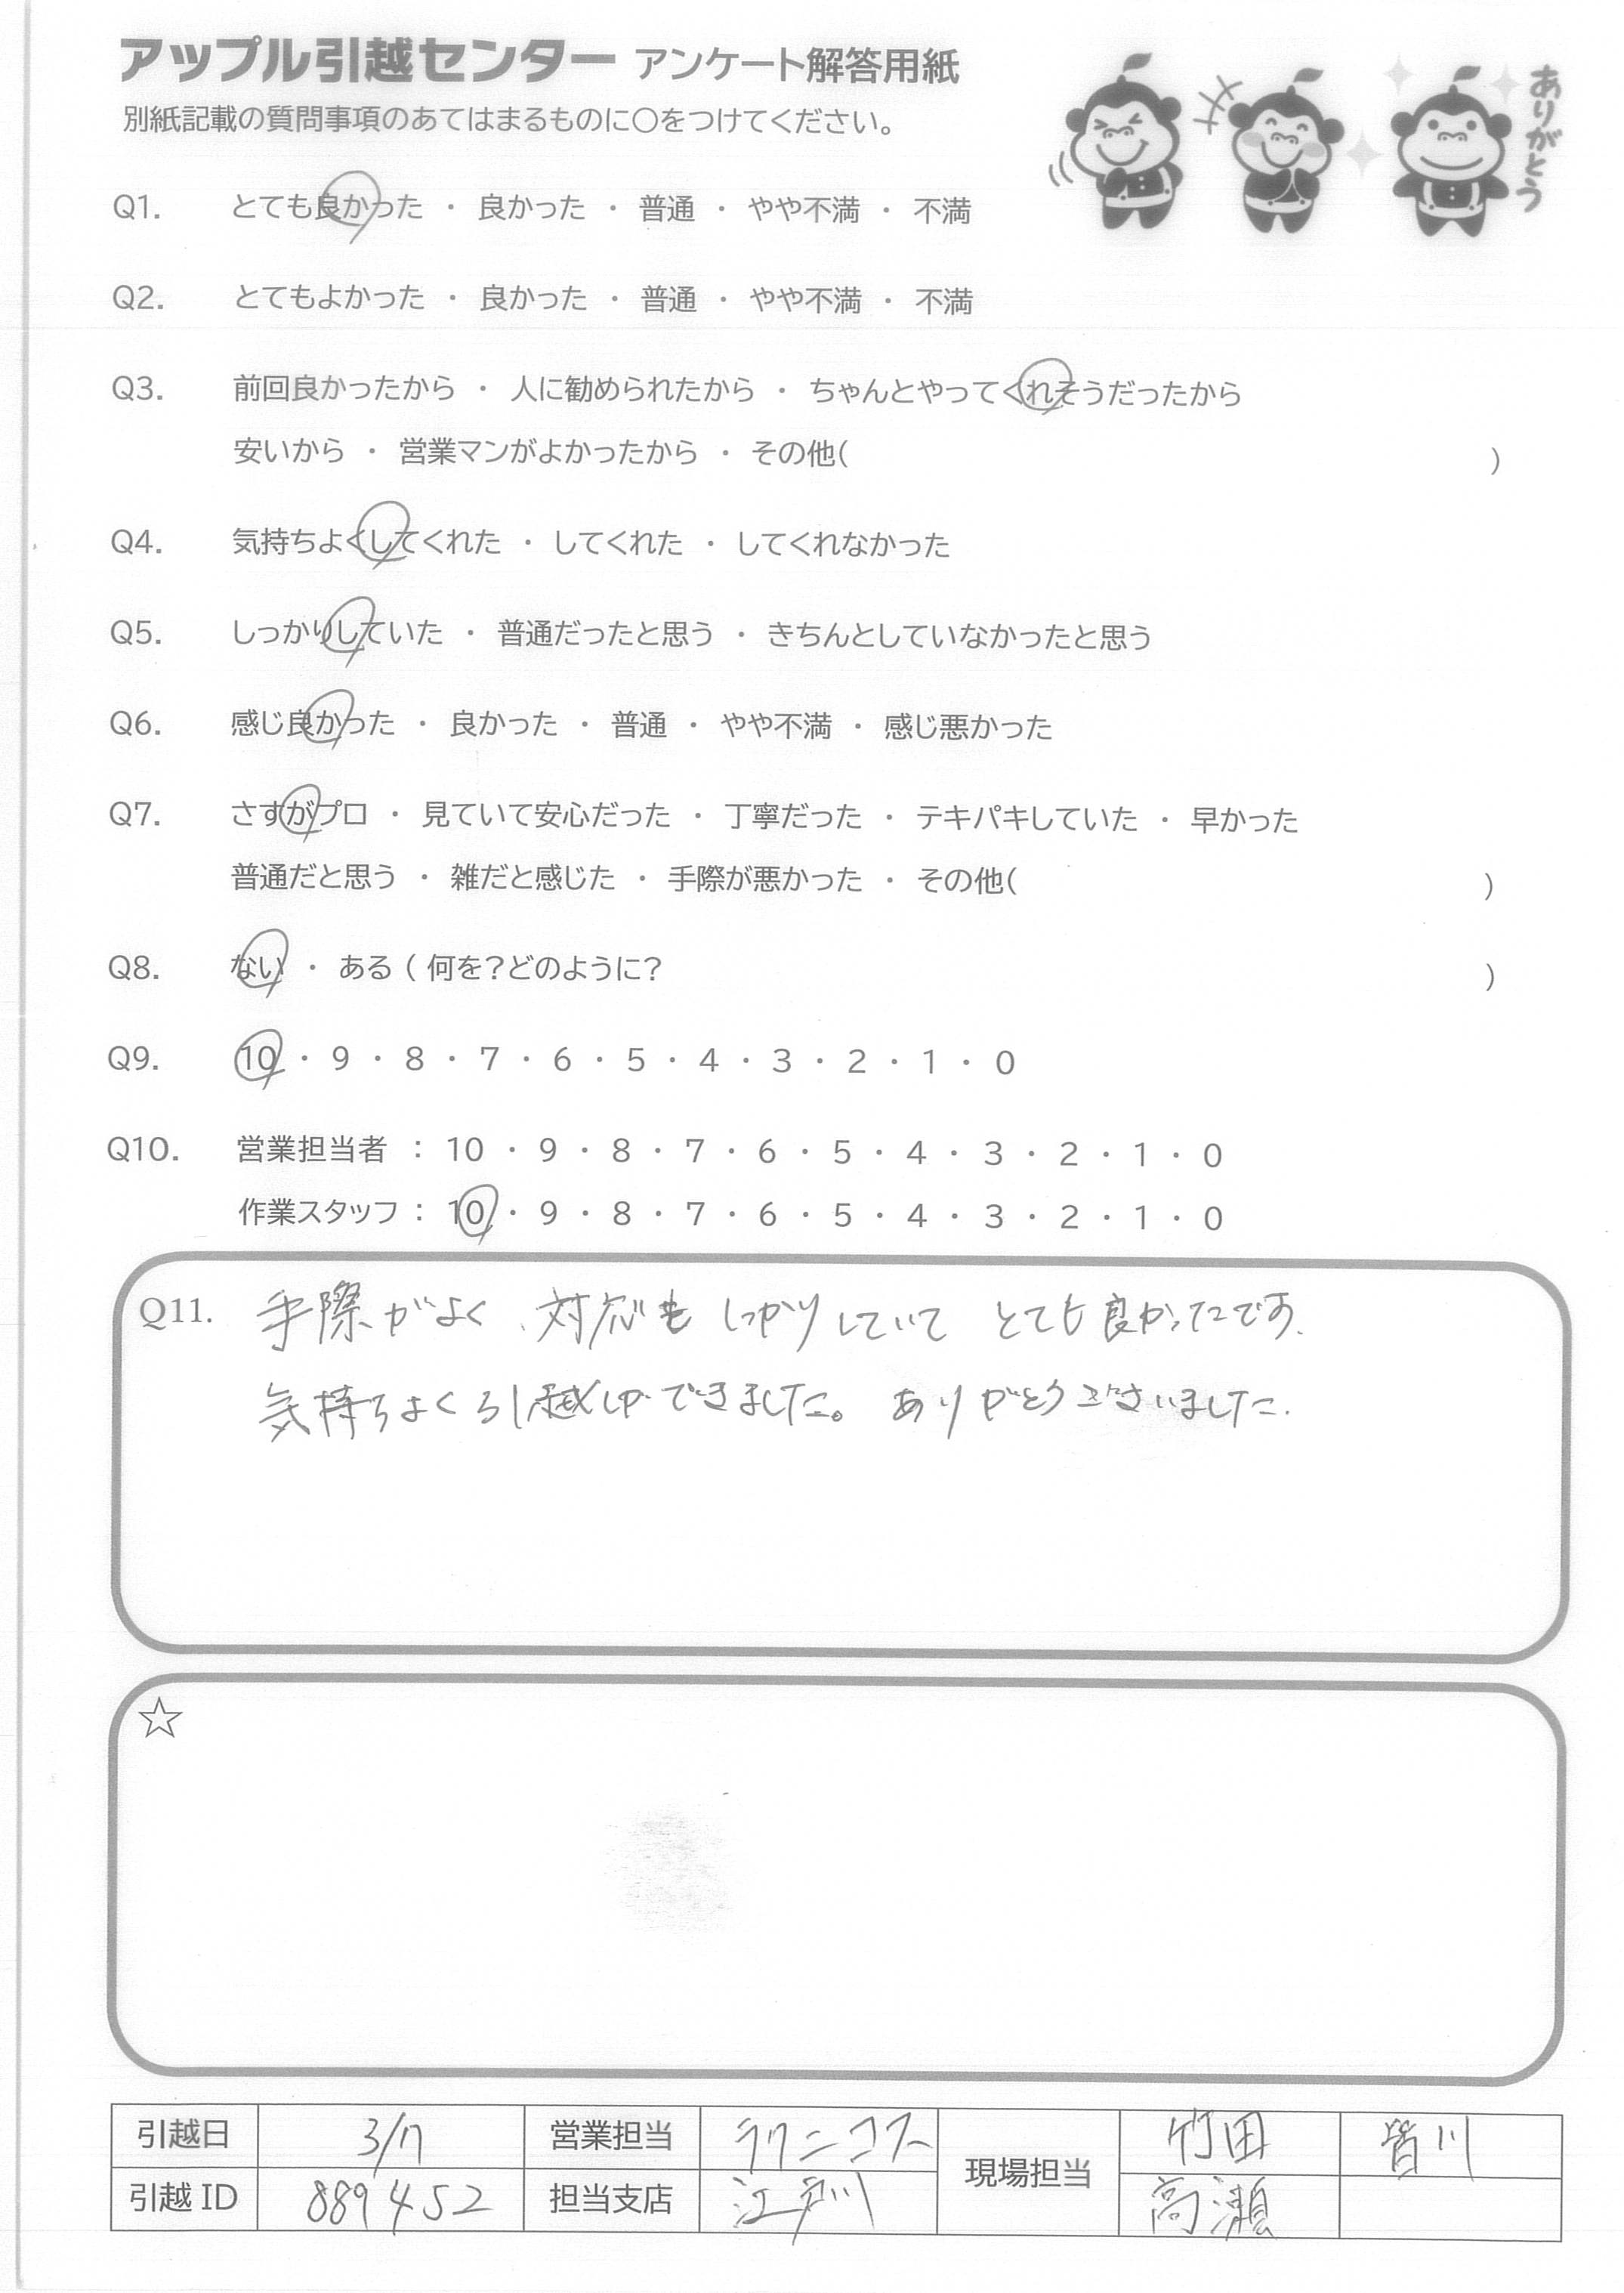 アップル引越センター アンケート解答用紙
別紙記載の質問事項のあてはまるものに○をつけてください。
ありがとう
Q1. とても良かった ・ 良かった ・ 普通 ・ やや不満 ・ 不満
Q2. とてもよかった ・ 良かった ・ 普通 ・ やや不満 ・ 不満
Q3. 前回良かったから ・ 人に勧められたから ・ ちゃんとやってくれそうだったから
安いから ・ 営業マンがよかったから ・ その他( )
Q4. 気持ちよくしてくれた ・ してくれた ・ してくれなかった
Q5. しっかりしていた ・ 普通だったと思う ・ きちんとしていなかったと思う
Q6. 感じ良かった ・ 良かった ・ 普通 ・ やや不満 ・ 感じ悪かった
Q7. さすがプロ ・ 見ていて安心だった ・ 丁寧だった ・ テキパキしていた ・ 早かった
普通だと思う ・ 雑だと感じた ・ 手際が悪かった ・ その他( )
Q8. ない ・ ある ( 何を?どのように? )
Q9. 10 ・ 9 ・ 8 ・ 7 ・ 6 ・ 5 ・ 4 ・ 3 ・ 2 ・ 1 ・ 0
Q10. 営業担当者 : 10 ・ 9 ・ 8 ・ 7 ・ 6 ・ 5 ・ 4 ・ 3 ・ 2 ・ 1 ・ 0
作業スタッフ : 10 ・ 9 ・ 8 ・ 7 ・ 6 ・ 5 ・ 4 ・ 3 ・ 2 ・ 1 ・ 0
Q11. 手際がよく、対応も しっかりしていて とても良かったです.
気持ちよく引越しができました。 ありがとうございました.
☆
引越日 3/17 営業担当 現場担当 竹田 皆川
引越 ID 889452 担当支店 江戸川 高瀬